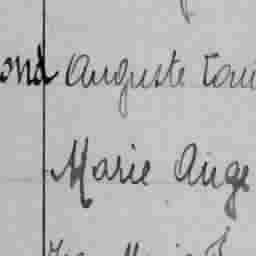 ond Auguste Loui
Marie Ange